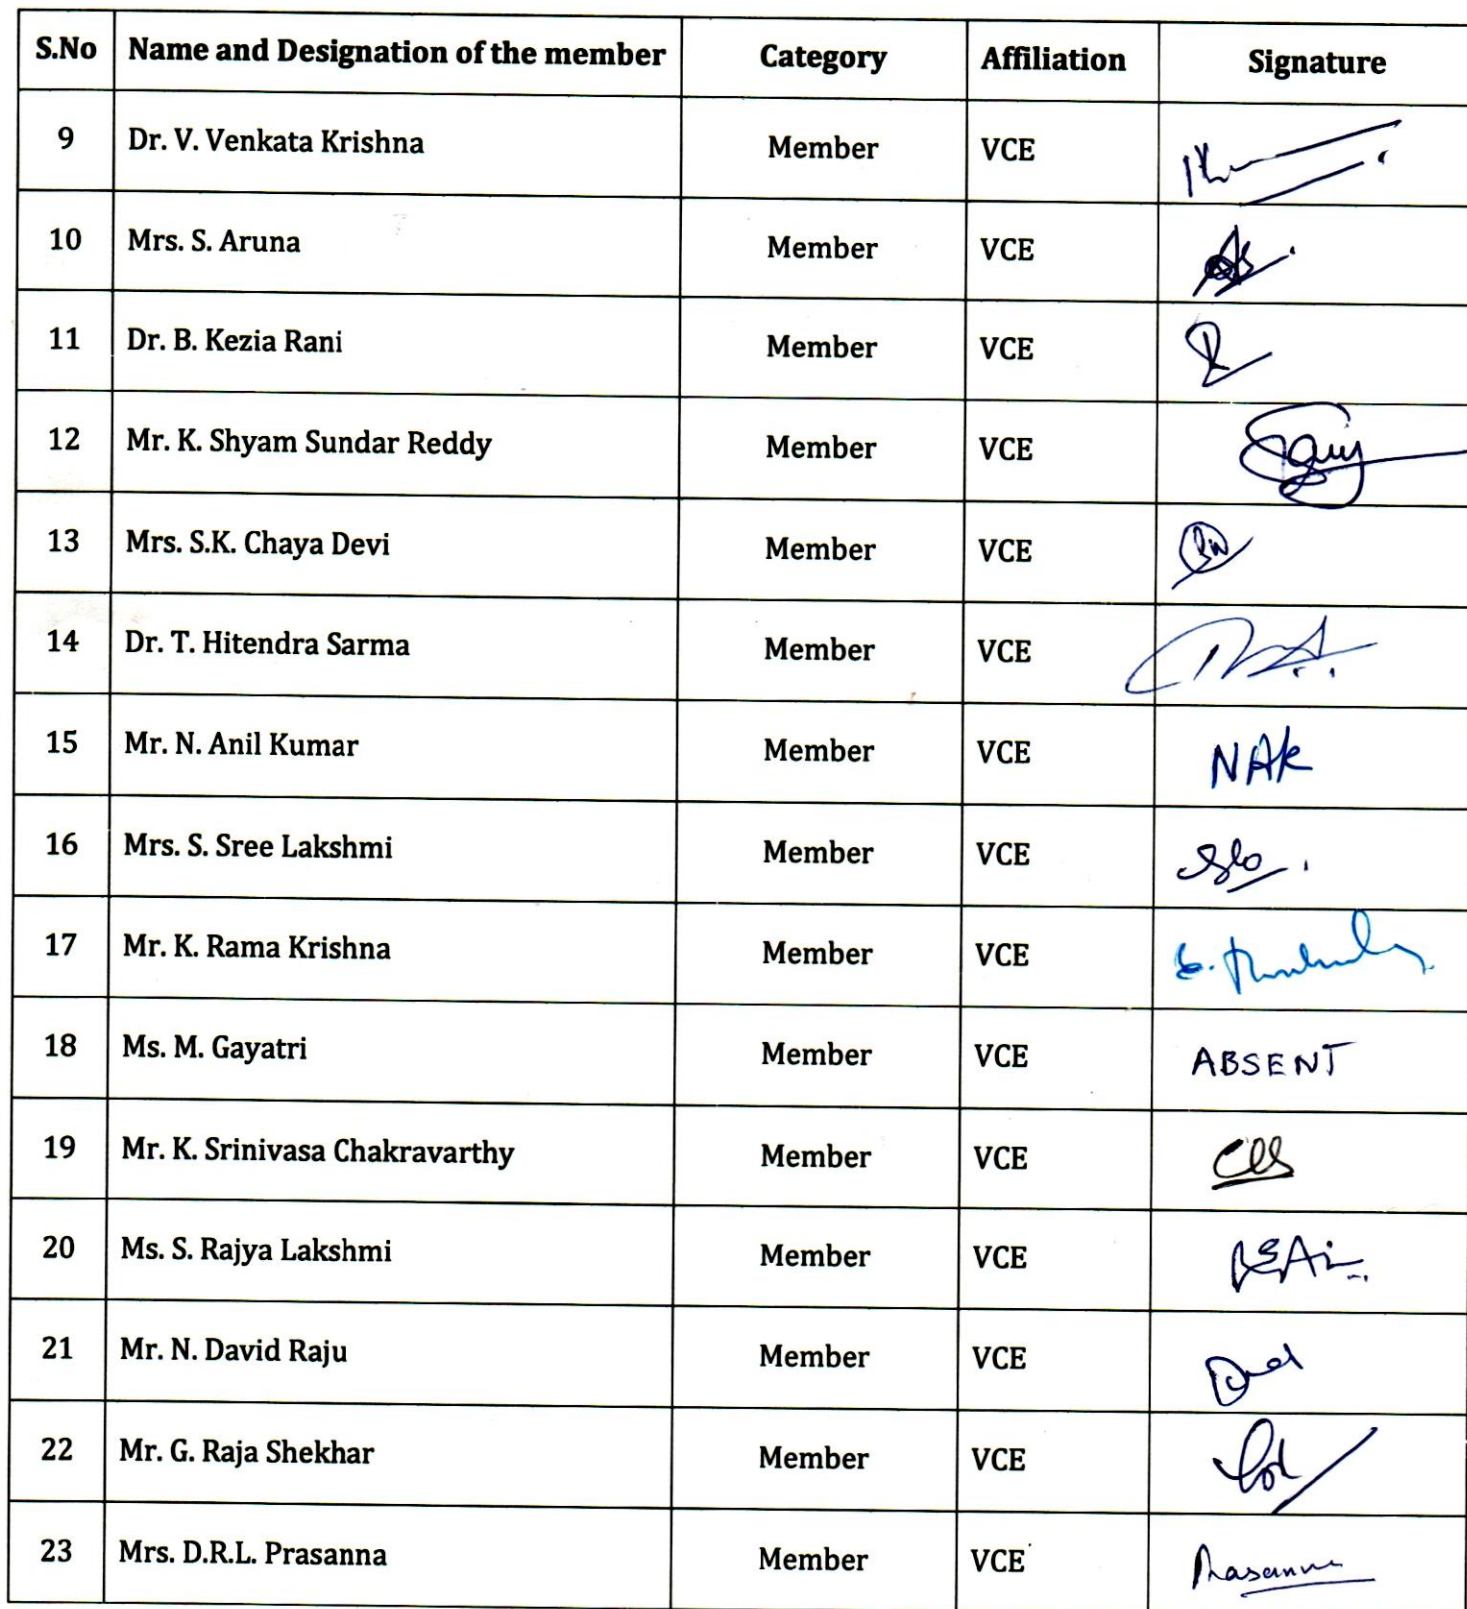 S.No Name and Designation of the member Category Affiliation Signature
9 Dr. V. Venkata Krishna Member VCE
10 Mrs. S. Aruna Member VCE
11 Dr. B. Kezia Rani Member VCE
12 Mr. K. Shyam Sundar Reddy Member VCE
13 Mrs. S.K. Chaya Devi Member VCE
14 Dr. T. Hitendra Sarma Member VCE
15 Mr. N. Anil Kumar Member VCE NAK
16 Mrs. S. Sree Lakshmi Member VCE
17 Mr. K. Rama Krishna Member VCE
18 Ms. M. Gayatri Member VCE ABSENT
19 Mr. K. Srinivasa Chakravarthy Member VCE
20 Ms. S. Rajya Lakshmi Member VCE
21 Mr. N. David Raju Member VCE
22 Mr. G. Raja Shekhar Member VCE
23 Mrs. D.R.L. Prasanna Member VCE